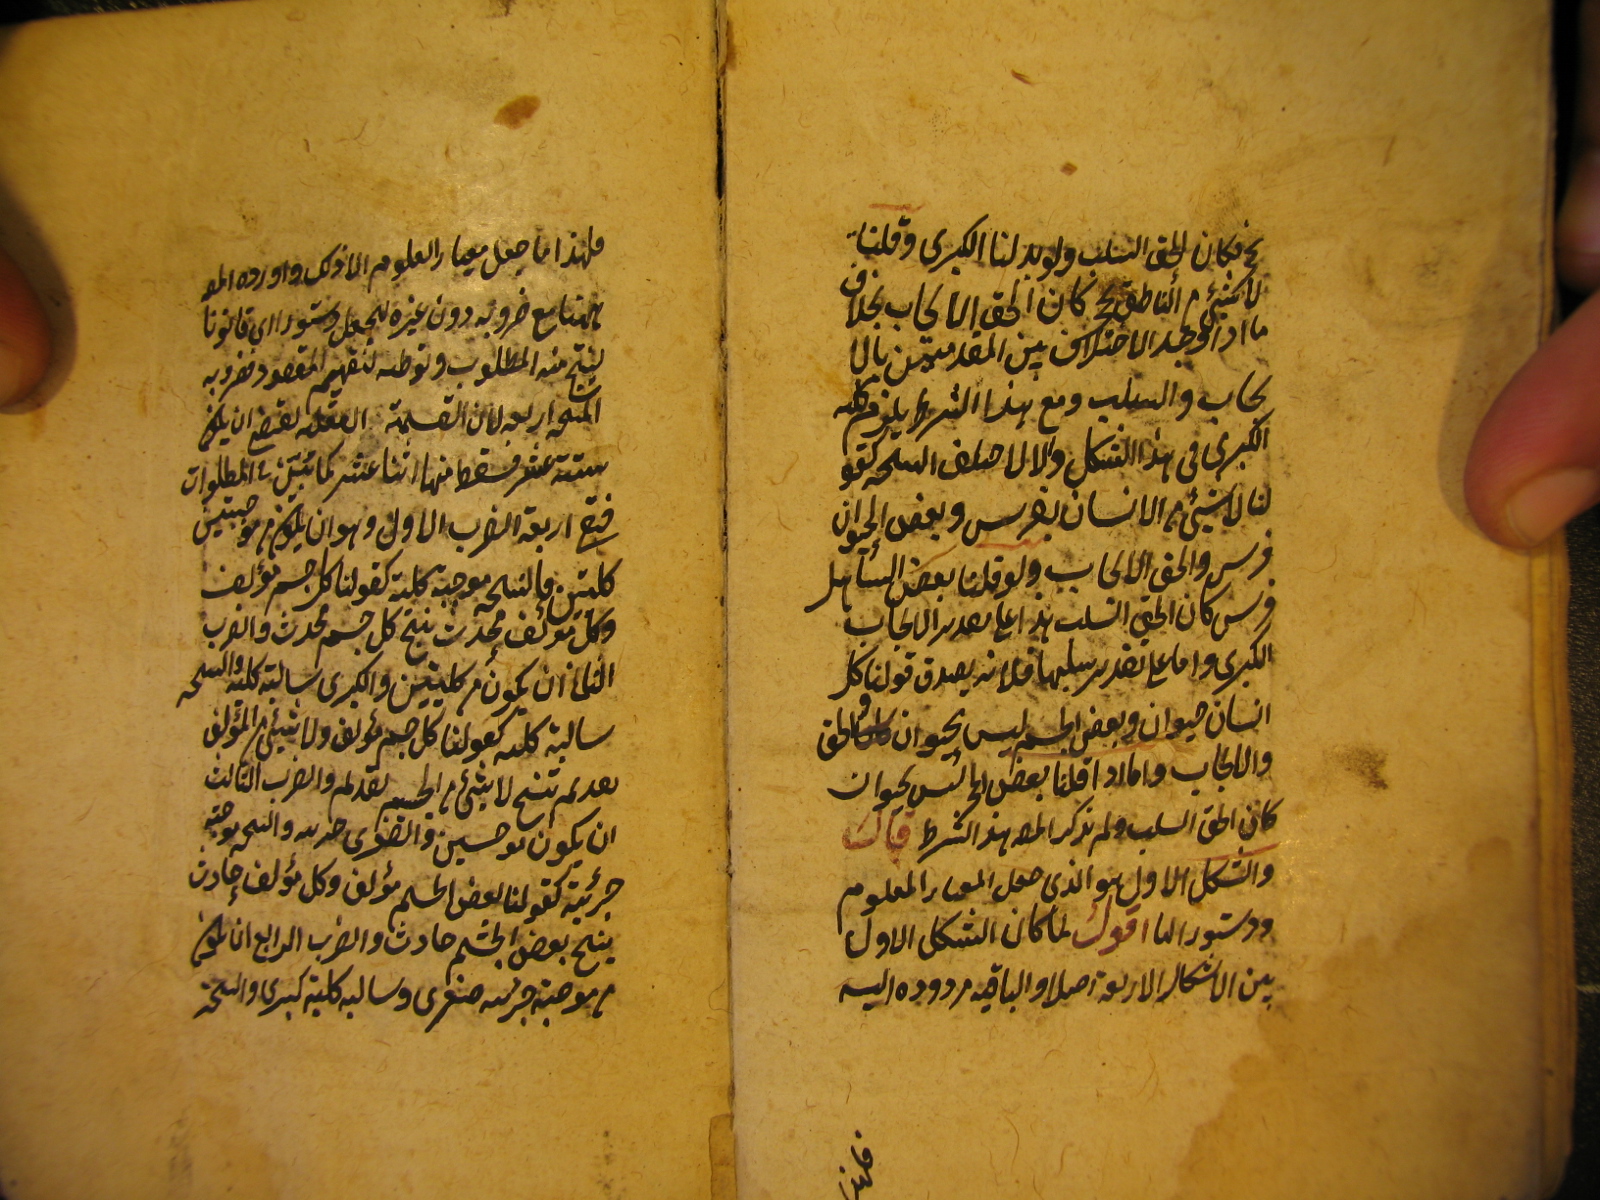 ح فكان الحق السلب ولو بدلنا الكبرى وقلنا
لا شئ م الناطق بحـ كان الحق الايجاب بخلاف
ما اذا وجد الاختلاف بين المقدمتين بالا
يجاب والسلب ومع هذا الشرط يلزم كلية
الكبرى فى هذا الشكل والا لاختلف النتيجه كقو
لنا لا شئ م الانسان بفرس وبعض الحيوان
فرس والحق الايجاب ولو قلنا بعض الصاهل
فرس كان الحق السلب هذا على تقدير الايجاب
الكبرى واما على تقدير سلبها فلانه يصدق قولنا كل
انسان حيوان وبعض الجسم ليس بحيوان والحق
والايجاب واما اذا قلنا بعض الحجر ليس بحيوان
كان الحق السلب ولم يذكر المصـ هذا الشرط قال
والشكل الاول هو الذى جعل المعيار العلوم
ودستور الها اقول لما كان الشكل الاول
بين الاشكال الاربعة اصلا والباقيه مردوده اليه
فلهذا
فلهذا ما جعل معيار العلوم الا ذلك واورده المصـ
ههنا مع ضروبه دون غيره ليجعل دستورا اى قانونا
لينتج منه المطلوب وتوطئه لتفهيم المقصود فضروبه
المنتجه اربعه لان القسمة العقليه تقتضى ان يكون
ستة عشر فسقط منها اثنا عشر كما تبين فى المطولات
فبقى اربعة الضرب الاول وهو ان يكون م موجبتين
كليتين فالنتيجه موجبه كلية كقولنا كل جسم مؤلف
وكل مؤلف محدث ينتج كل جسم محدث والضرب
الثانى ان يكون م كليتين والكبرى سالبة كلية والنتيجه
سالبة كليه كقولنا كل جسم مؤلف ولا شئ م المؤلف
بقديم ينتج لا شئ م الجسم بقديم والضرب الثالث
ان يكون موجبتين والصغرى جزئيه والنتيجه موجبة
جزئية كقولنا بعض الجسم مؤلف وكل مؤلف حادث
ينتج بعض الجسم حادث والضرب الرابع ان يكون
م موجبة جزئيه صغرى وسالبه كلية كبرى والنتيجة